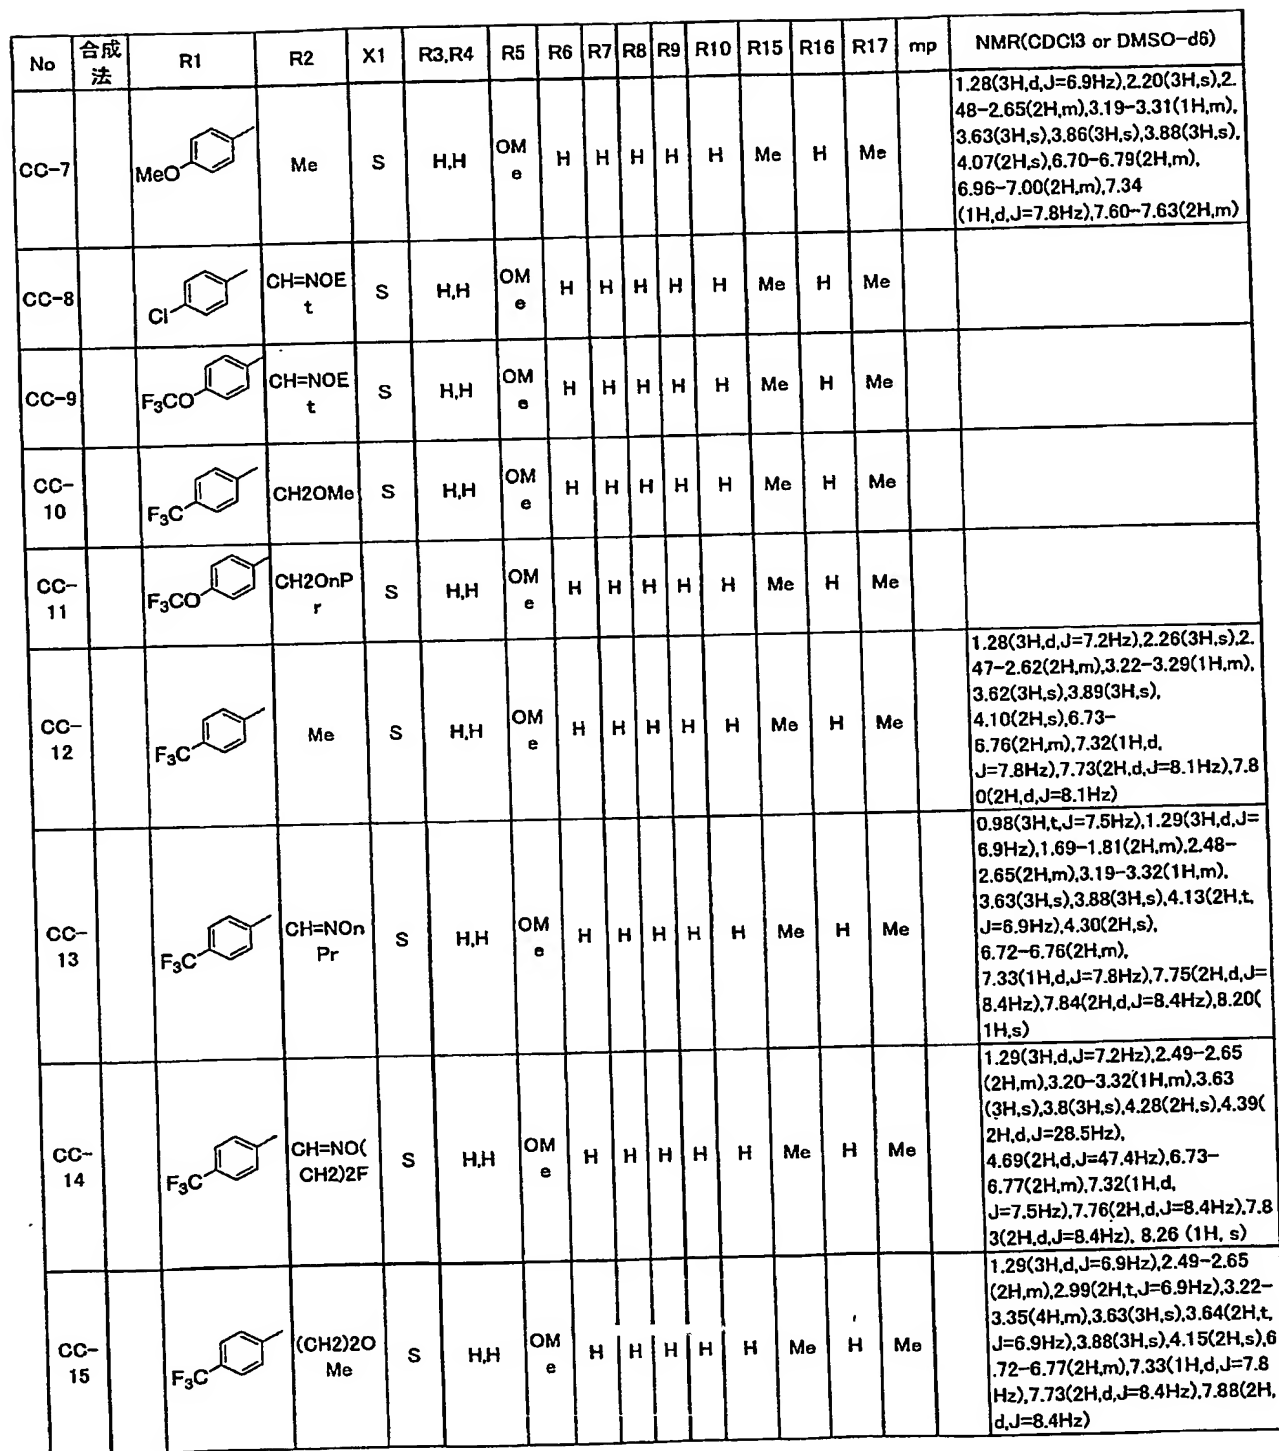 No 合成法 R1 R2 X1 R3,R4 R5 R6 R7 R8 R9 R10 R15 R16 R17 mp NMR(CDCl3 or DMSO-d6)
CC-7 MeO Me S H,H OMe H H H H H Me H Me
1.28(3H,d,J=6.9Hz),2.20(3H,s),2.
48-2.65(2H,m),3.19-3.31(1H,m),
3.63(3H,s),3.86(3H,s),3.88(3H,s),
4.07(2H,s),6.70-6.79(2H,m),
6.96-7.00(2H,m),7.34
(1H,d,J=7.8Hz),7.60-7.63(2H,m)
CC-8 Cl CH=NOEt S H,H OMe H H H H H Me H Me
CC-9 F₃CO CH=NOEt S H,H OMe H H H H H Me H Me
CC-10 F₃C CH2OMe S H,H OMe H H H H H Me H Me
CC-11 F₃CO CH2OnPr S H,H OMe H H H H H Me H Me
CC-12 F₃C Me S H,H OMe H H H H H Me H Me
1.28(3H,d,J=7.2Hz),2.26(3H,s),2.
47-2.62(2H,m),3.22-3.29(1H,m),
3.62(3H,s),3.89(3H,s),
4.10(2H,s),6.73-
6.76(2H,m),7.32(1H,d,
J=7.8Hz),7.73(2H,d,J=8.1Hz),7.8
0(2H,d,J=8.1Hz)
CC-13 F₃C CH=NOnPr S H,H OMe H H H H H Me H Me
0.98(3H,t,J=7.5Hz),1.29(3H,d,J=
6.9Hz),1.69-1.81(2H,m),2.48-
2.65(2H,m),3.19-3.32(1H,m),
3.63(3H,s),3.88(3H,s),4.13(2H,t,
J=6.9Hz),4.30(2H,s),
6.72-6.76(2H,m),
7.33(1H,d,J=7.8Hz),7.75(2H,d,J=
8.4Hz),7.84(2H,d,J=8.4Hz),8.20(
1H,s)
CC-14 F₃C CH=NO(CH2)2F S H,H OMe H H H H H Me H Me
1.29(3H,d,J=7.2Hz),2.49-2.65
(2H,m),3.20-3.32(1H,m),3.63
(3H,s),3.8(3H,s),4.28(2H,s),4.39(
2H,d,J=28.5Hz),
4.69(2H,d,J=47.4Hz),6.73-
6.77(2H,m),7.32(1H,d,
J=7.5Hz),7.76(2H,d,J=8.4Hz),7.8
3(2H,d,J=8.4Hz), 8.26 (1H, s)
CC-15 F₃C (CH2)2OMe S H,H OMe H H H H H Me H Me
1.29(3H,d,J=6.9Hz),2.49-2.65
(2H,m),2.99(2H,t,J=6.9Hz),3.22-
3.35(4H,m),3.63(3H,s),3.64(2H,t,
J=6.9Hz),3.88(3H,s),4.15(2H,s),6
.72-6.77(2H,m),7.33(1H,d,J=7.8
Hz),7.73(2H,d,J=8.4Hz),7.88(2H,
d,J=8.4Hz)